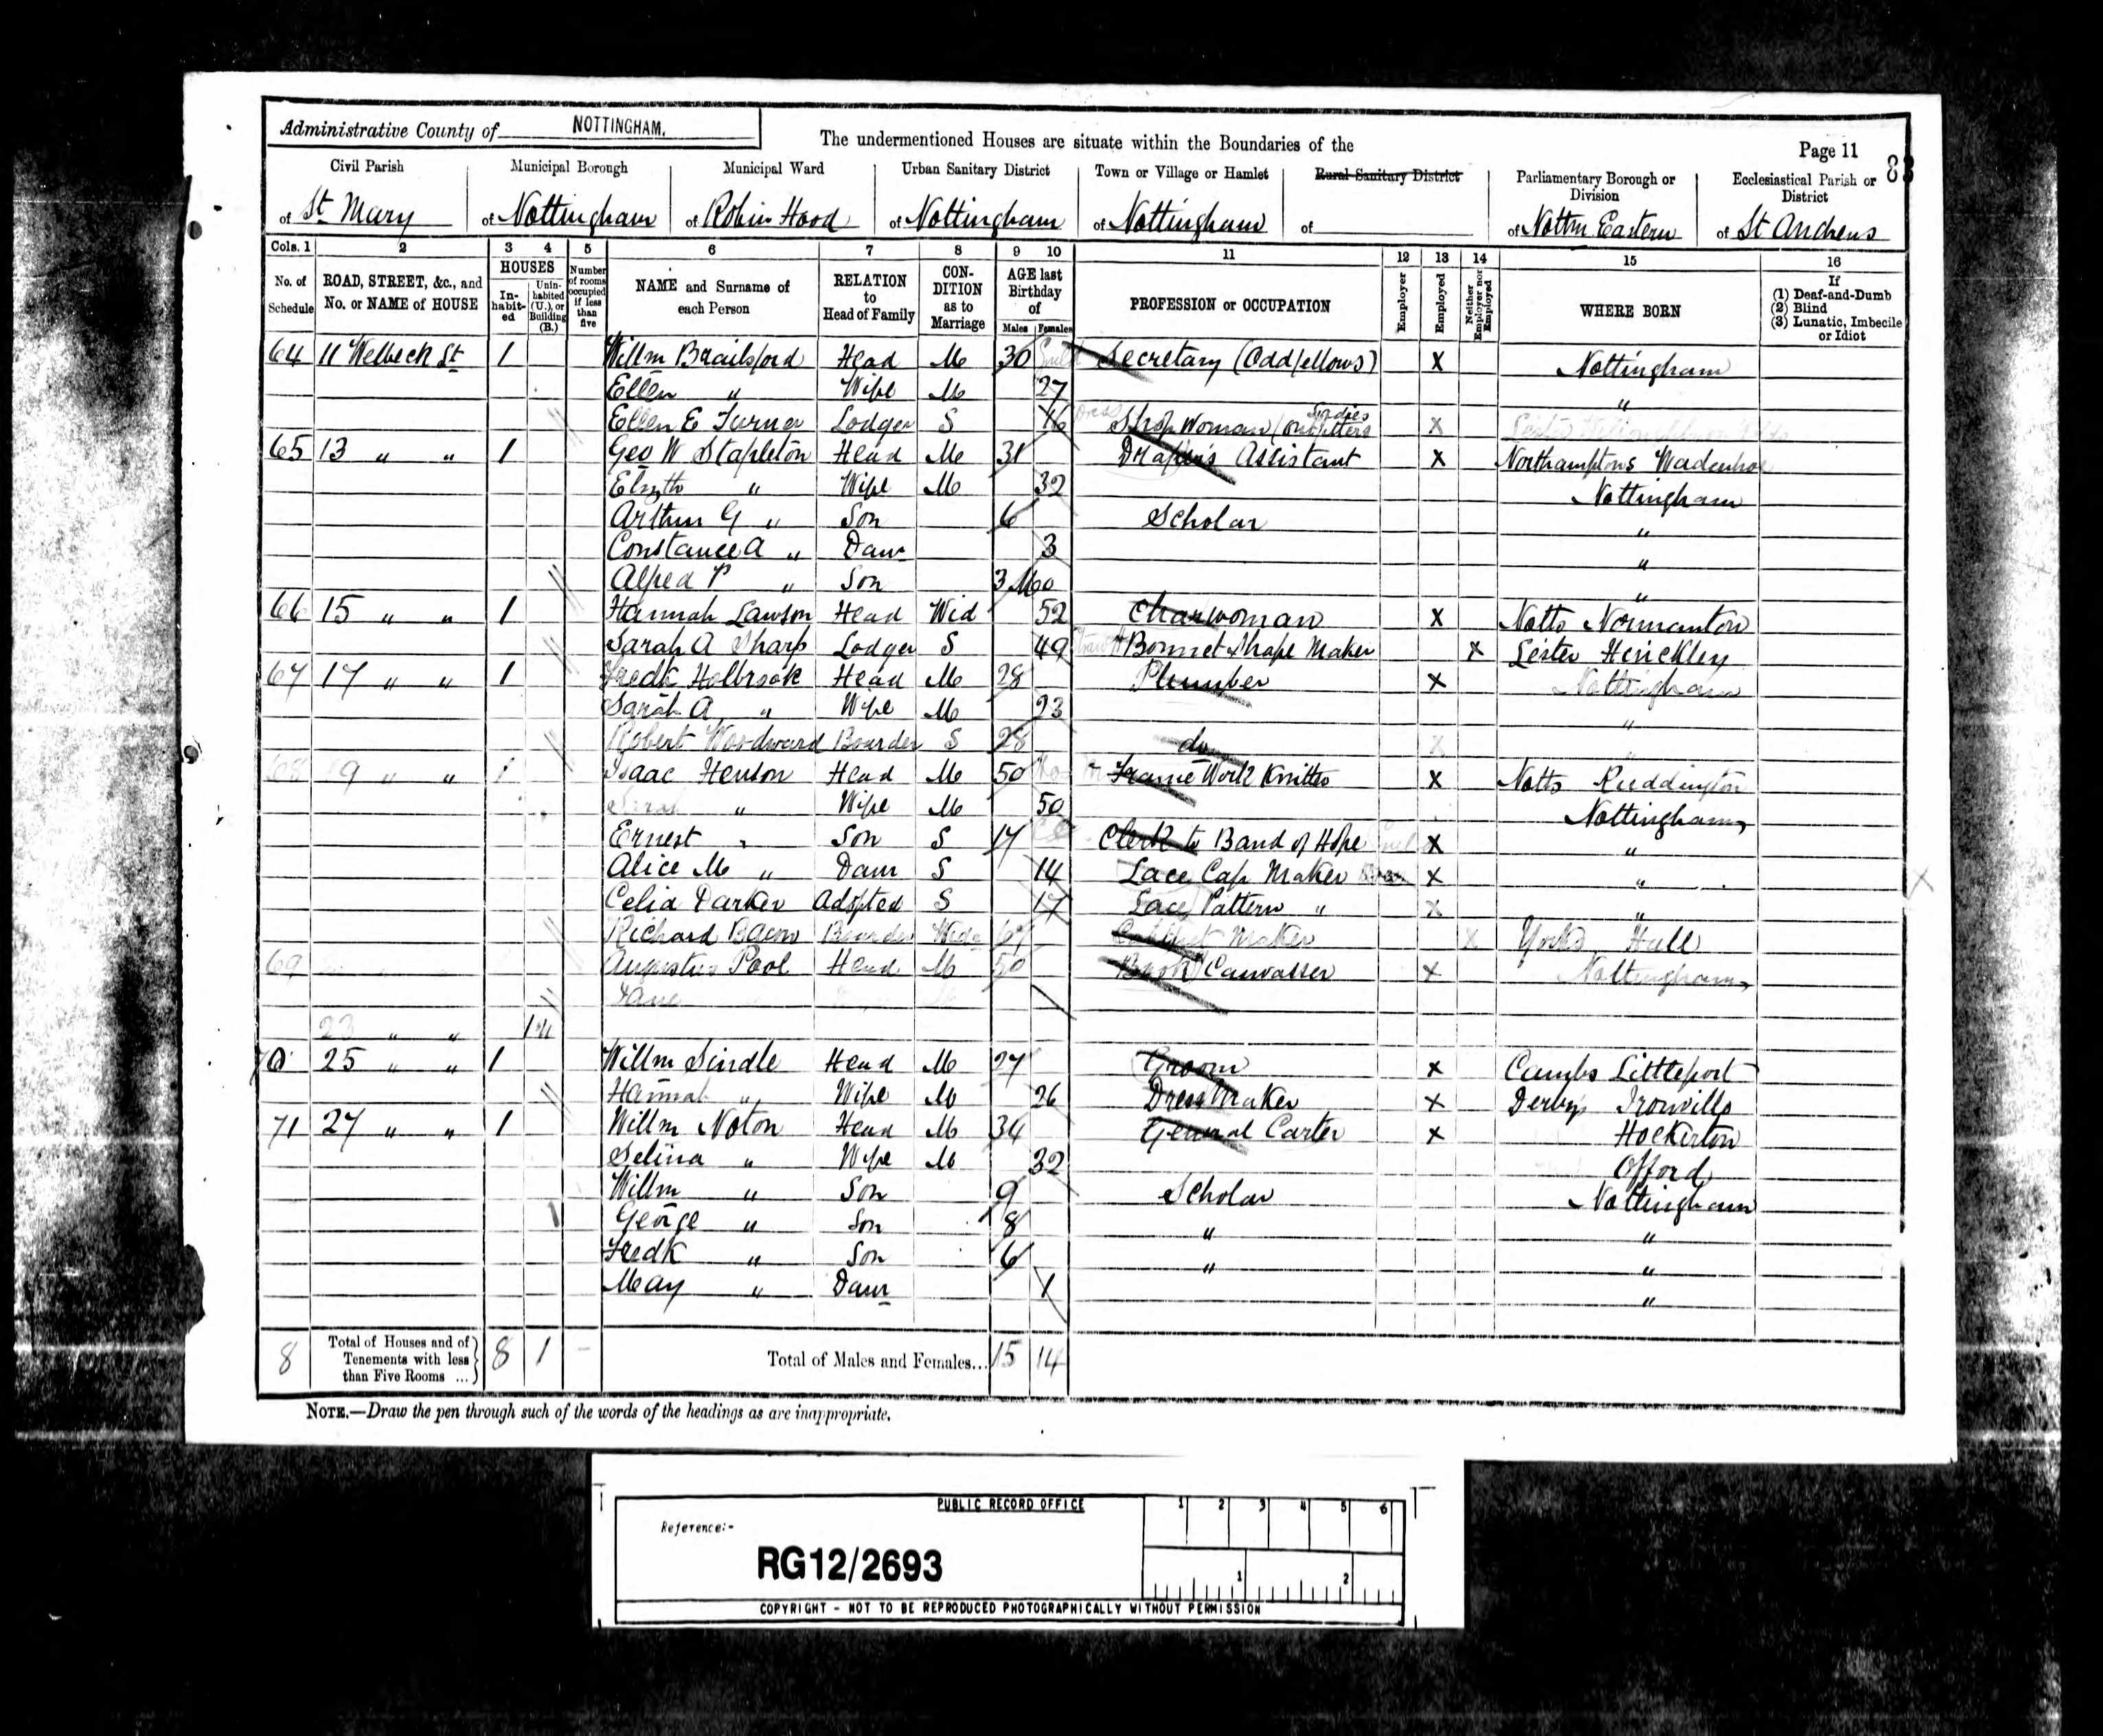 Administrative County of NOTTINGHAM.
The undermentioned Houses are situate within the Boundaries of the
Page 11
83
Civil Parish Municipal Borough Municipal Ward Urban Sanitary District Town or Village or Hamlet Rural Sanitary District Parliamentary Borough or Division Ecclesiastical Parish or District
of St. Mary of Nottingham of Robin Hood of Nottingham of Nottingham of of Nottm Eastern of St Andrews
Cols. 1 2 3 4 5 6 7 8 9 10 11 12 13 14 15 16
No. of Schedule ROAD, STREET, &c., and No. or NAME of HOUSE HOUSES In-habit-ed Unin-habited (U.), or Building (B.) Number of rooms occupied if less than five NAME and Surname of each Person RELATION to Head of Family CON-DITION as to Marriage AGE last Birthday of Males Females PROFESSION or OCCUPATION Employer Employed Neither Employer nor Employed WHERE BORN If (1) Deaf-and-Dumb (2) Blind (3) Lunatic, Imbecile or Idiot
64 11 Welbeck St 1 Willm Brailsford Head M 30 Secretary (Oddfellows) X Nottingham
Ellen " Wife M 27 "
Ellen E Turner Lodger S 16 Shop Woman (Ladies Outfitters X
65 13 " " 1 Geo W Stapleton Head M 31 Draper's Assistant X Northamptons Wadenhoe
Elizth " Wife M 32 Nottingham
Arthur G " Son 6 Scholar "
Constance A " Daur 3 "
Alfred P " Son 3 Mo "
66 15 " " 1 Hannah Lawson Head Wid 52 Charwoman X Notts Normanton
Sarah A Sharp Lodger S 49 Bonnet Shape Maker X Lester Hinckley
67 17 " " 1 Fredk Holbrook Head M 28 Plumber X Nottingham
Sarah A " Wife M 23 "
Robert Woodward Boarder S 28 do X
68 19 " " 1 Isaac Henson Head M 50 Frame Work Knitter X Notts Ruddington
Sarah " Wife M 50 Nottingham
Ernest " Son S 17 Clerk to Band of Hope X "
Alice M " Daur S 14 Lace Cap Maker X "
Celia Darker Adopted S 17 Lace Pattern " X "
Richard Bacon Boarder Widr 67 Cabinet Maker X Yorks Hull
69 Augustus Pool Head M 50 Book Canvasser X Nottingham
Jane
23 " " 1 U
70 25 " " 1 Willm Sindle Head M 27 Groom X Cambs Littleport
Hannah " Wife M 26 Dress Maker X Derbys Ironville
71 27 " " 1 Willm Noton Head M 34 General Carter X Hockerton
Selina " Wife M 32 Offord
Willm " Son 9 Scholar Nottingham
George " Son 8 " "
Fredk " Son 6 " "
May " Daur 1 "
8 Total of Houses and of Tenements with less than Five Rooms ... 8 1 - Total of Males and Females... 15 14
NOTE.—Draw the pen through such of the words of the headings as are inappropriate.
PUBLIC RECORD OFFICE
1 2 3 4 5 6
Reference:-
RG12/2693
1 2
COPYRIGHT - NOT TO BE REPRODUCED PHOTOGRAPHICALLY WITHOUT PERMISSION